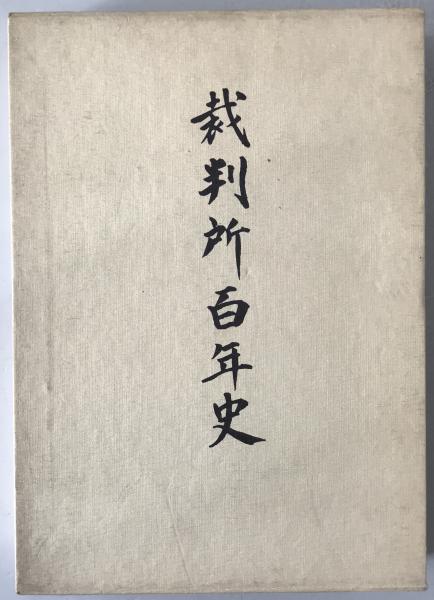 裁判所百年史